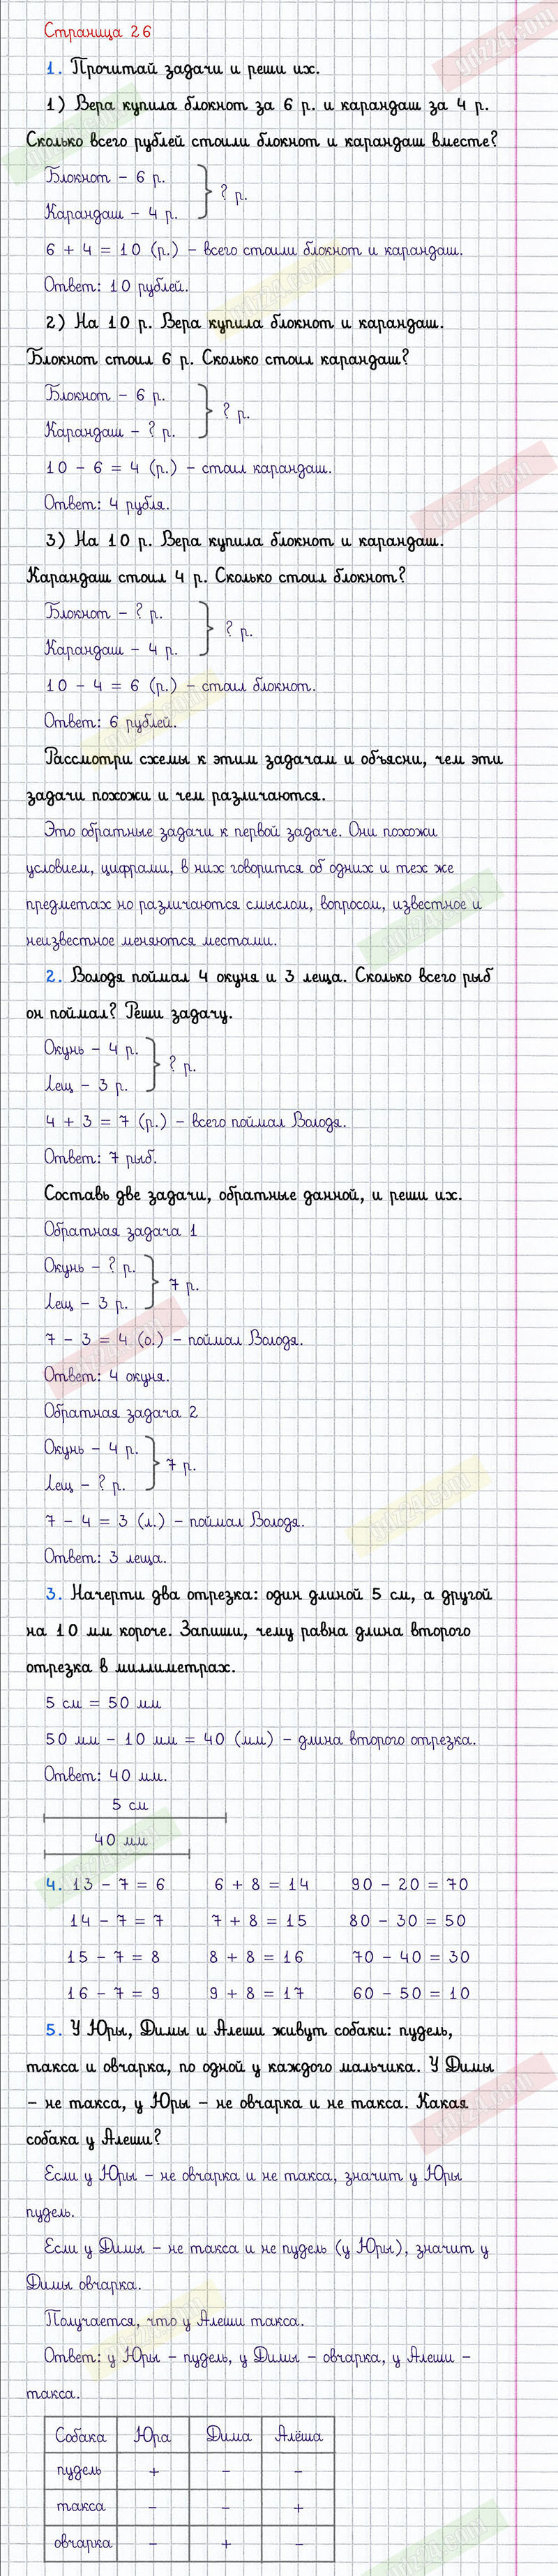 Страница 26
1. Прочитай задачи и реши их.
1) Вера купила блокнот за 6 р. и карандаш за 4 р.
Сколько всего рублей стоили блокнот и карандаш вместе?
Блокнот – 6 р.
? р.
Карандаш – 4 р.
6 + 4 = 10 (р.) – всего стоили блокнот и карандаш.
Ответ: 10 рублей.
2) На 10 р. Вера купила блокнот и карандаш.
Блокнот стоил 6 р. Сколько стоил карандаш?
Блокнот – 6 р.
? р.
Карандаш – ? р.
10 – 6 = 4 (р.) – стоил карандаш.
Ответ: 4 рубля.
3) На 10 р. Вера купила блокнот и карандаш.
Карандаш стоил 4 р. Сколько стоил блокнот?
Блокнот – ? р.
? р.
Карандаш – 4 р.
10 – 4 = 6 (р.) – стоил блокнот.
Ответ: 6 рублей.
Рассмотри схемы к этим задачам и объясни, чем эти
задачи похожи и чем различаются.
Это обратные задачи к первой задаче. Они похожи
условием, цифрами, в них говорится об одних и тех же
предметах но различаются смыслом, вопросом, известное и
неизвестное меняются местами.
2. Володя поймал 4 окуня и 3 леща. Сколько всего рыб
он поймал? Реши задачу.
Окунь – 4 р.
? р.
Лещ – 3 р.
4 + 3 = 7 (р.) – всего поймал Володя.
Ответ: 7 рыб.
Составь две задачи, обратные данной, и реши их.
Обратная задача 1
Окунь – ? р.
7 р.
Лещ – 3 р.
7 – 3 = 4 (о.) – поймал Володя.
Ответ: 4 окуня.
Обратная задача 2
Окунь – 4 р.
7 р.
Лещ – ? р.
7 – 4 = 3 (л.) – поймал Володя.
Ответ: 3 леща.
3. Начерти два отрезка: один длиной 5 см, а другой
на 10 мм короче. Запиши, чему равна длина второго
отрезка в миллиметрах.
5 см = 50 мм
50 мм – 10 мм = 40 (мм) – длина второго отрезка.
Ответ: 40 мм.
5 см
40 мм
4. 13 – 7 = 6 6 + 8 = 14 90 – 20 = 70
14 – 7 = 7 7 + 8 = 15 80 – 30 = 50
15 – 7 = 8 8 + 8 = 16 70 – 40 = 30
16 – 7 = 9 9 + 8 = 17 60 – 50 = 10
5. У Юры, Димы и Алеши живут собаки: пудель,
такса и овчарка, по одной у каждого мальчика. У Димы
– не такса, у Юры – не овчарка и не такса. Какая
собака у Алеши?
Если у Юры – не овчарка и не такса, значит у Юры
пудель.
Если у Димы – не такса и не пудель (у Юры), значит у
Димы овчарка.
Получается, что у Алеши такса.
Ответ: у Юры – пудель, у Димы – овчарка, у Алеши –
такса.
Собака Юра Дима Алёша
пудель + – –
такса – – +
овчарка – + –